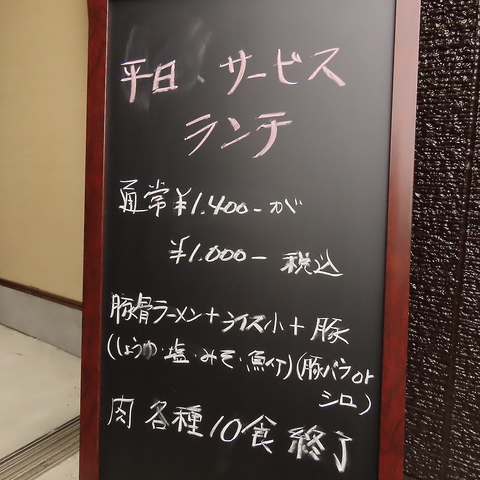 平日 サービス
ランチ
通常¥1.400-が
¥1.000- 税込
豚骨ラーメン+ライス小+豚
(しょうゆ・塩・みそ・魚介)(豚バラor
シロ)
肉 各種10食 終了